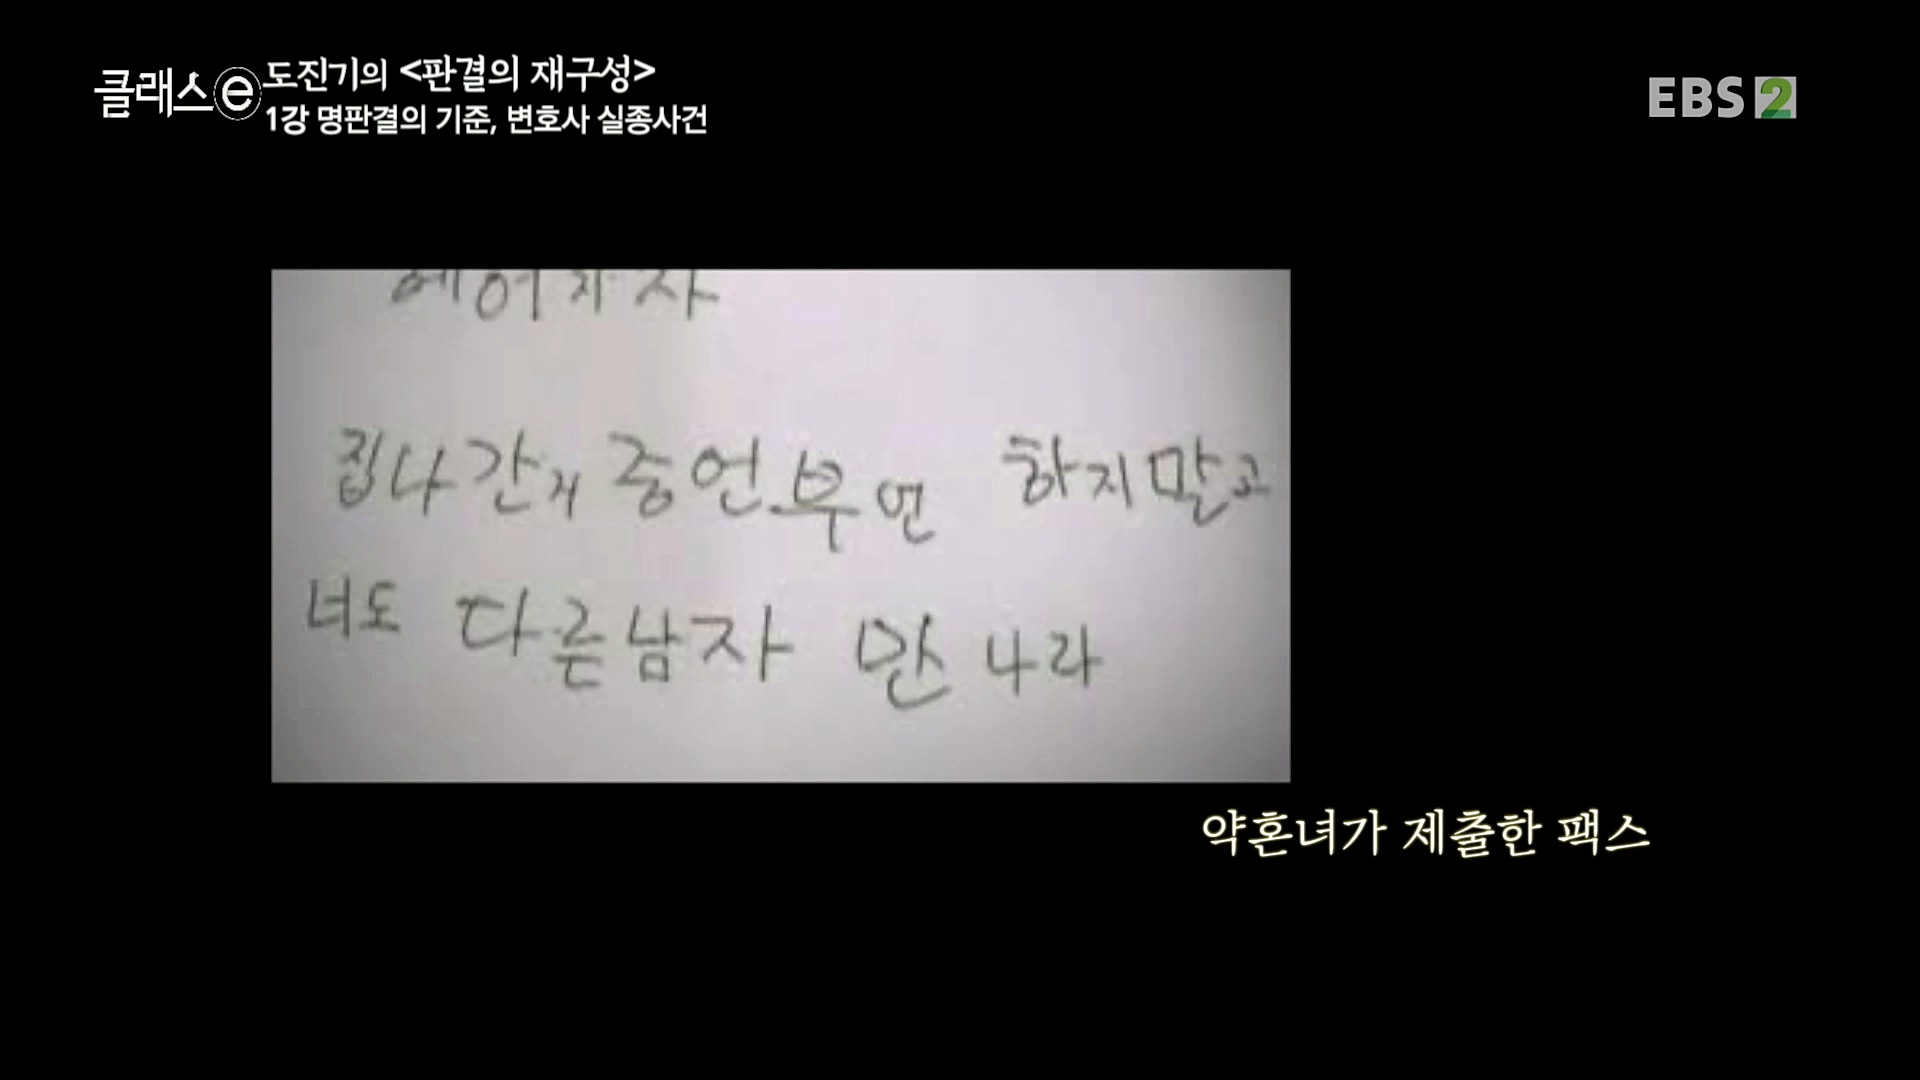 클래스e
도진기의 <판결의 재구성>
1강 명판결의 기준, 변호사 실종사건
EBS2
헤어지자
집나간게 중언부언 하지말고
너도 다른남자 만나라
약혼녀가 제출한 팩스